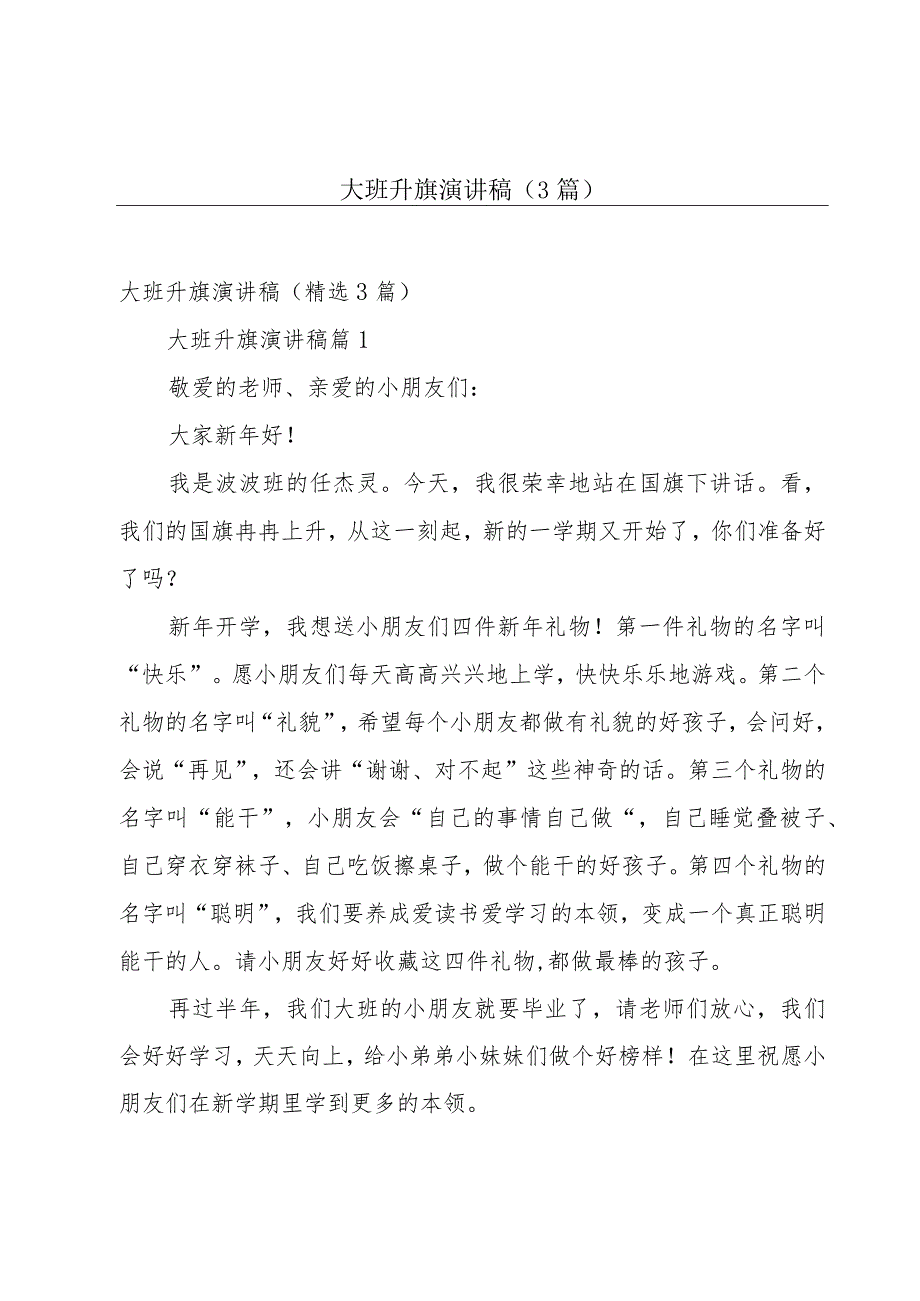 大班升旗演讲稿（3篇）
大班升旗演讲稿（精选3篇）
大班升旗演讲稿篇1
敬爱的老师、亲爱的小朋友们：
大家新年好！
我是波波班的任杰灵。今天，我很荣幸地站在国旗下讲话。看，
我们的国旗冉冉上升，从这一刻起，新的一学期又开始了，你们准备好
了吗？
新年开学，我想送小朋友们四件新年礼物！第一件礼物的名字叫
“快乐”。愿小朋友们每天高高兴兴地上学，快快乐乐地游戏。第二个
礼物的名字叫“礼貌”，希望每个小朋友都做有礼貌的好孩子，会问好，
会说“再见”，还会讲“谢谢、对不起”这些神奇的话。第三个礼物的
名字叫“能干”，小朋友会“自己的事情自己做“，自己睡觉叠被子、
自己穿衣穿袜子、自己吃饭擦桌子，做个能干的好孩子。第四个礼物的
名字叫“聪明”，我们要养成爱读书爱学习的本领，变成一个真正聪明
能干的人。请小朋友好好收藏这四件礼物,都做最棒的孩子。
再过半年，我们大班的小朋友就要毕业了，请老师们放心，我们
会好好学习，天天向上，给小弟弟小妹妹们做个好榜样！在这里祝愿小
朋友们在新学期里学到更多的本领。